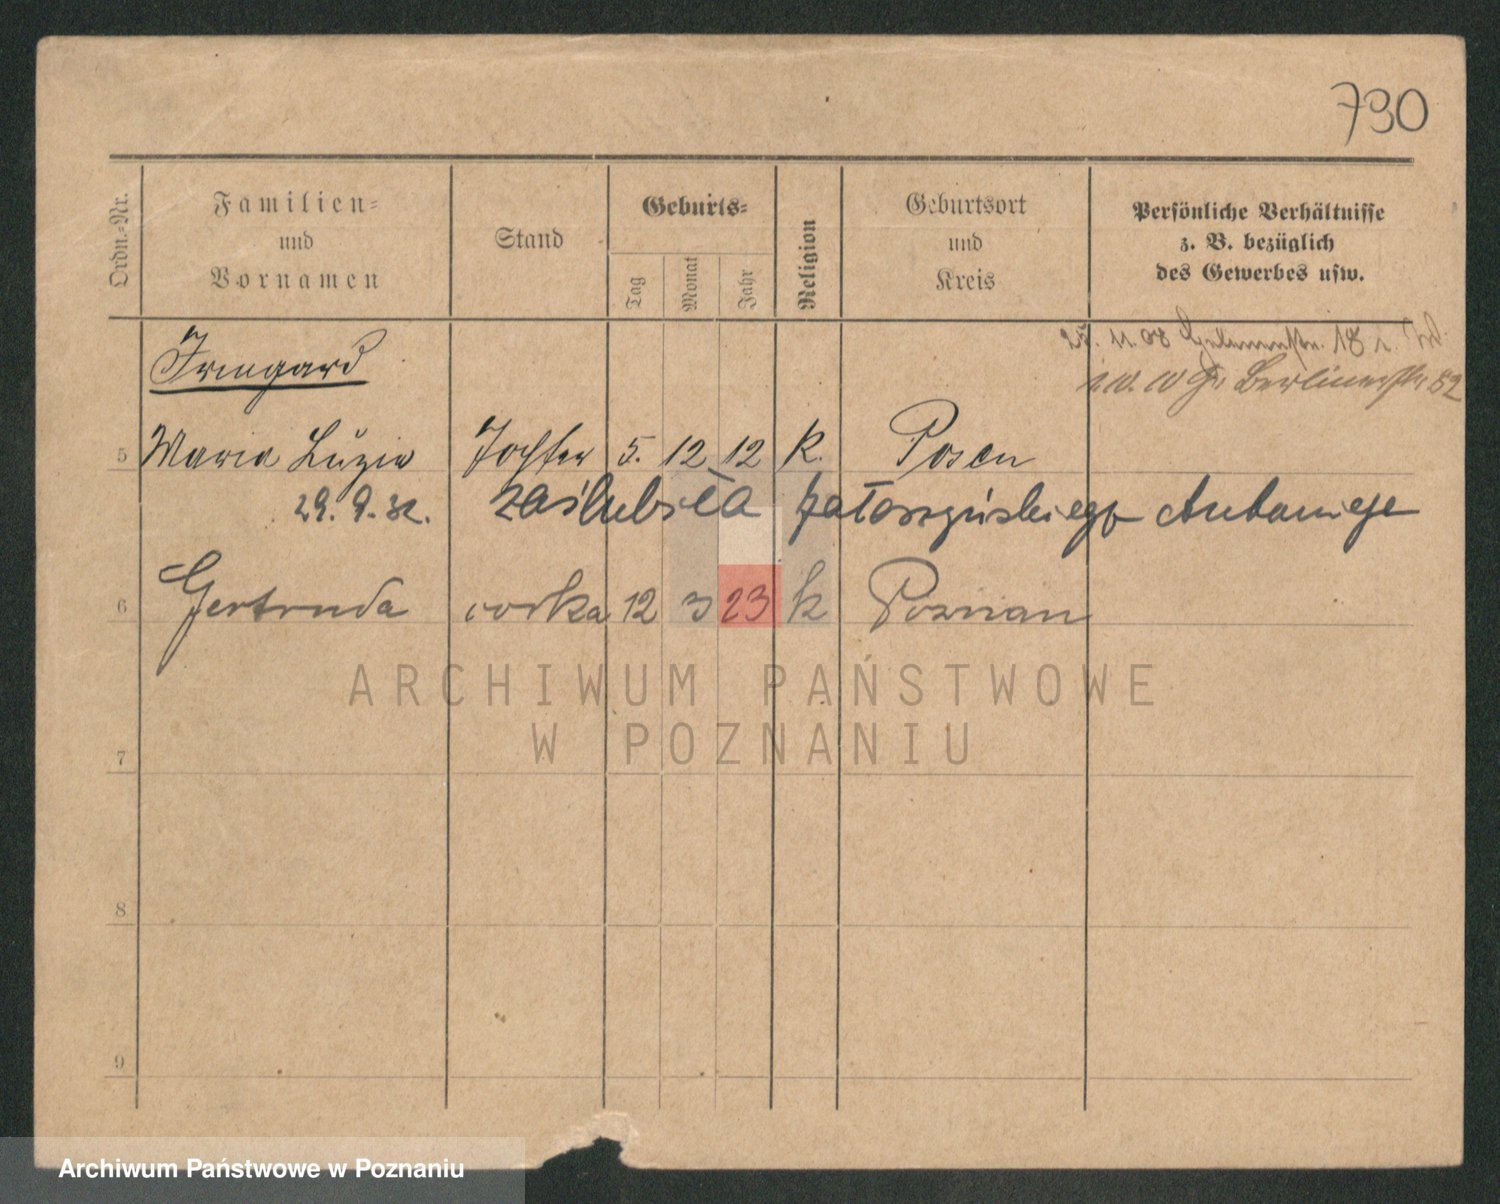 730
Ordn.-Nr.
Familien-
und
Vornamen
Stand
Geburts-
Tag
Monat
Jahr
Religion
Geburtsort
und
Kreis
Persönliche Verhältnisse
z. B. bezüglich
des Gewerbes usw.
25. 11. 08 18
Berlinerstr. 52
Irmgard
5 Maria Luzia Tochter 5. 12 12 k. Posen
29. 9. 32. zaślubiła Antoniego
6 Gertruda corka 12 3 23 k Poznan
ARCHIWUM PAŃSTWOWE
W POZNANIU
7
8
9
Archiwum Państwowe w Poznaniu